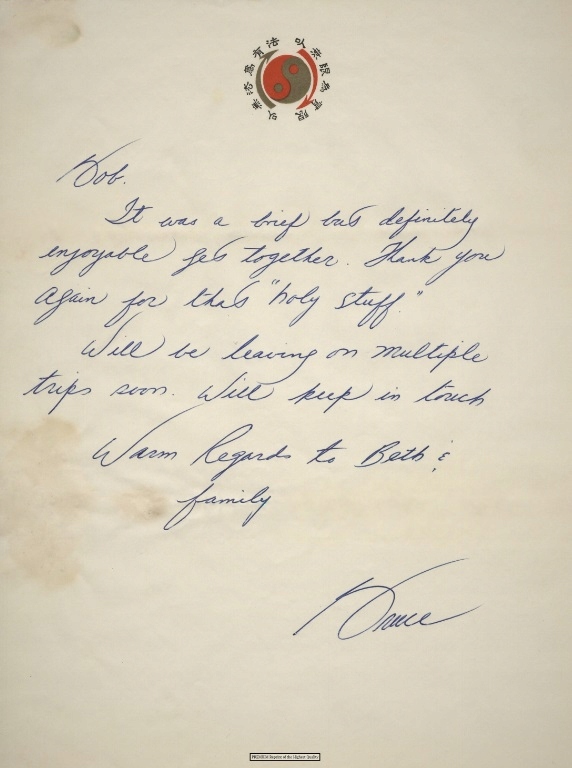 以無法為有法 以無限為有限
Bob.
It was a brief but definitely
enjoyable get together. Thank you
again for that "holy stuff."
Will be leaving on multiple
trips soon. Will keep in touch
Warm Regards to Beth &
family
Bruce
PREMIUM Reprint of the Highest Quality